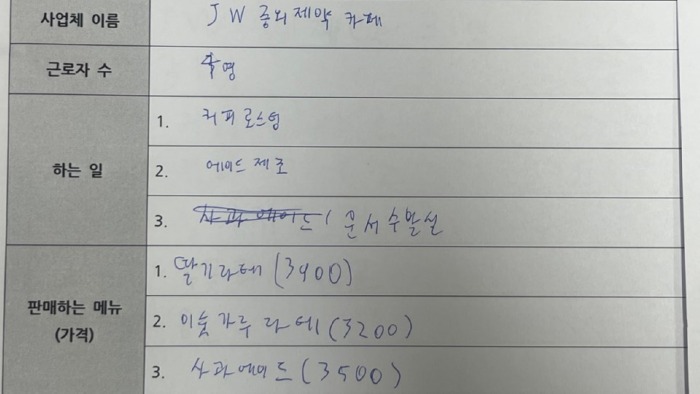 사업체 이름 JW 중외제약 카페
근로자 수 명
하는 일
1. 커피로스팅
2. 에이드 제조
3. 사과에이드 / 문서수발실
판매하는 메뉴
(가격)
1. 딸기라떼 (3900)
2. 이숯가루 라떼 (3200)
3. 사과에이드 (3500)